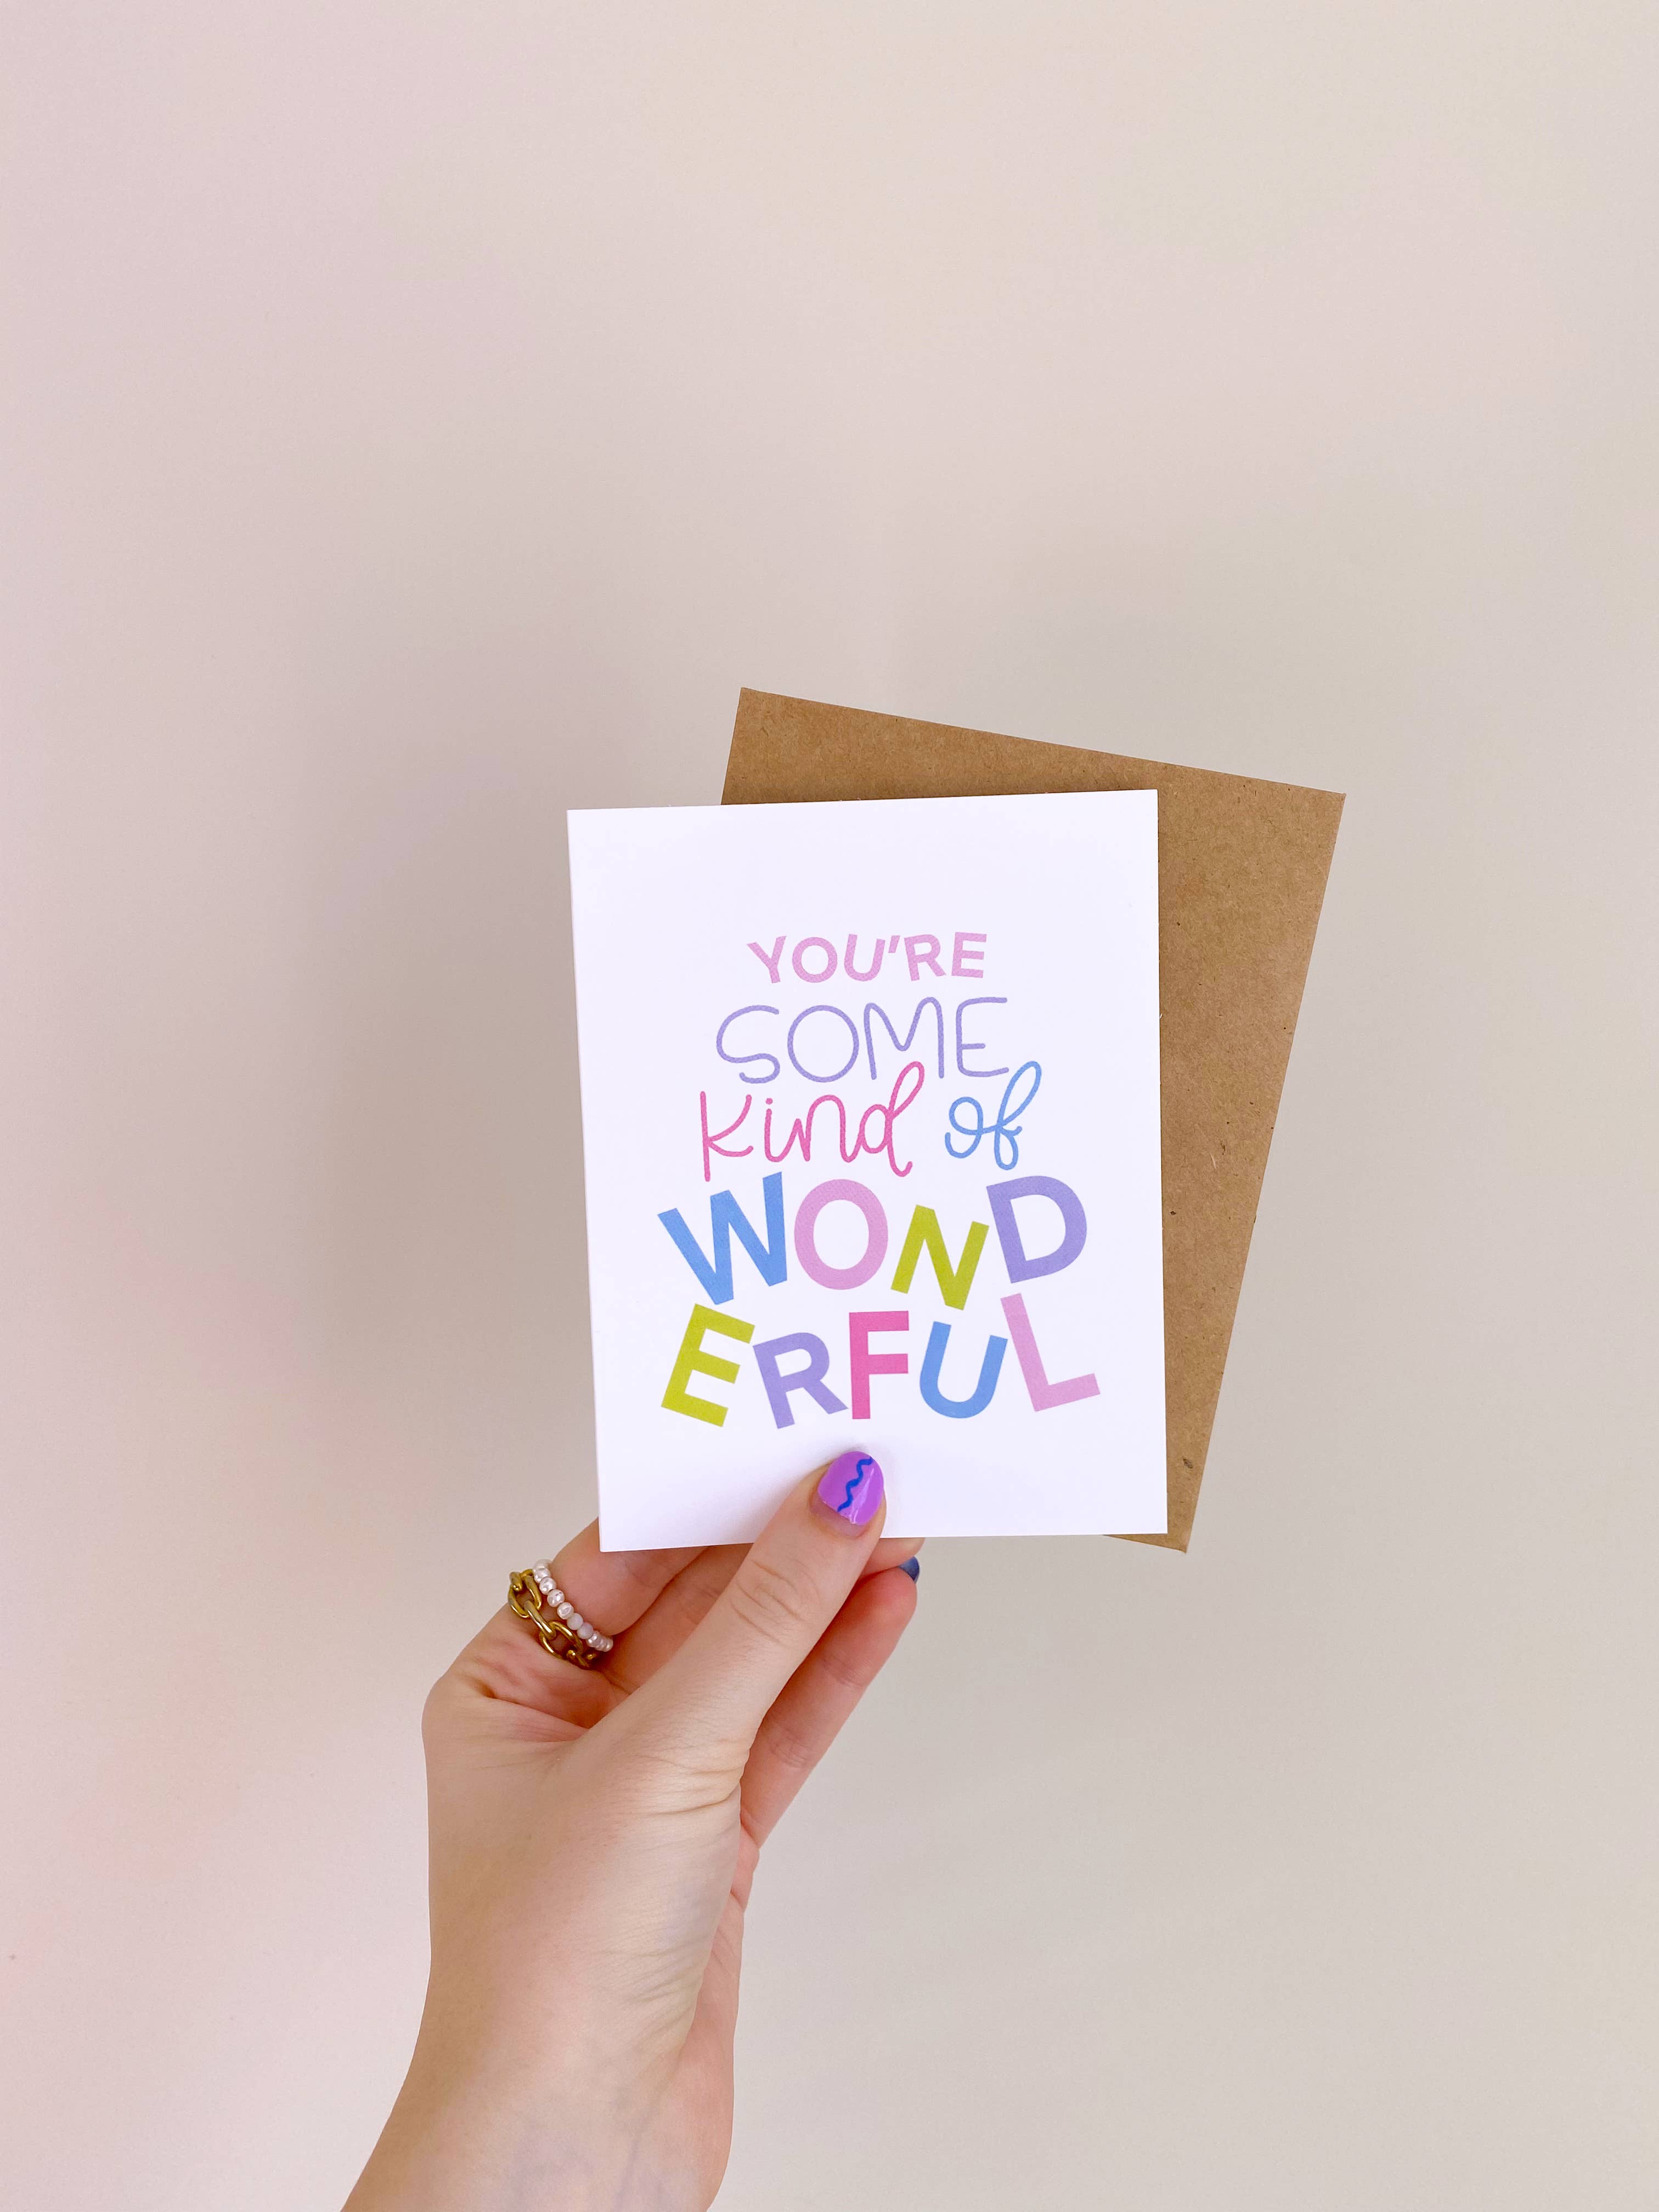 YOU'RE
SOME
kind of
WOND
ERFUL